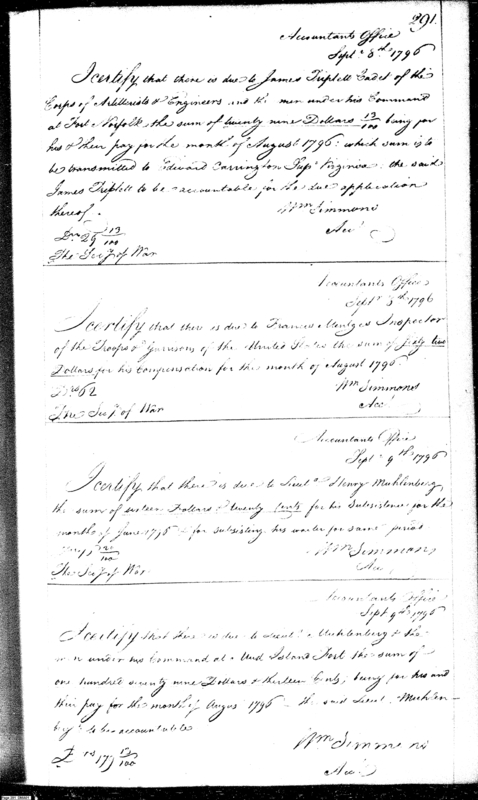 291.
Accountants Office
Sept. 8th 1796
I certify that there is due to James Triplett Cadet of the
Corps of Artillerists & Engineers and the men under his Command
at Fort Norfolk the sum of twenty nine Dollars 13/100 being for
his & their pay for the month of August 1796 which sum is to
be transmitted to Edward Carrington Supr Virginia the said
James Triplett to be accountable for the due application
thereof.
Wm Simmons
Acct
Drs 29 13/100
The Secy of War
Accountants Office
Sept 8th 1796
I certify that there is due to Francis Mentges Inspector
of the Troops & Garrisons of the United States the sum of sixty two
Dollars for his Compensation for the month of August 1796
Wm Simmons
Drs 62
Acct
The Secy of War
Accountants Office
Sept 9th 1796
I certify that there is due to Lieut Henry Muhlenberg
the sum of sixteen Dollars & twenty Cents for his Subsistence for the
month of June 1796 for subsisting his waiter for same period
Wm Simmons
Acct
The Secy of War
Accountants Office
Sept 9th 1796
I certify that there is due to Lieut Muhlenberg & the
men under his Command at Mud Island Fort the sum of
one hundred seventy nine Dollars & thirteen Cents, being for his and
their pay for the month of August 1796 the said Lieut Muhlen-
berg to be accountable
Wm Simmons
Drs 179 13/100
Acct